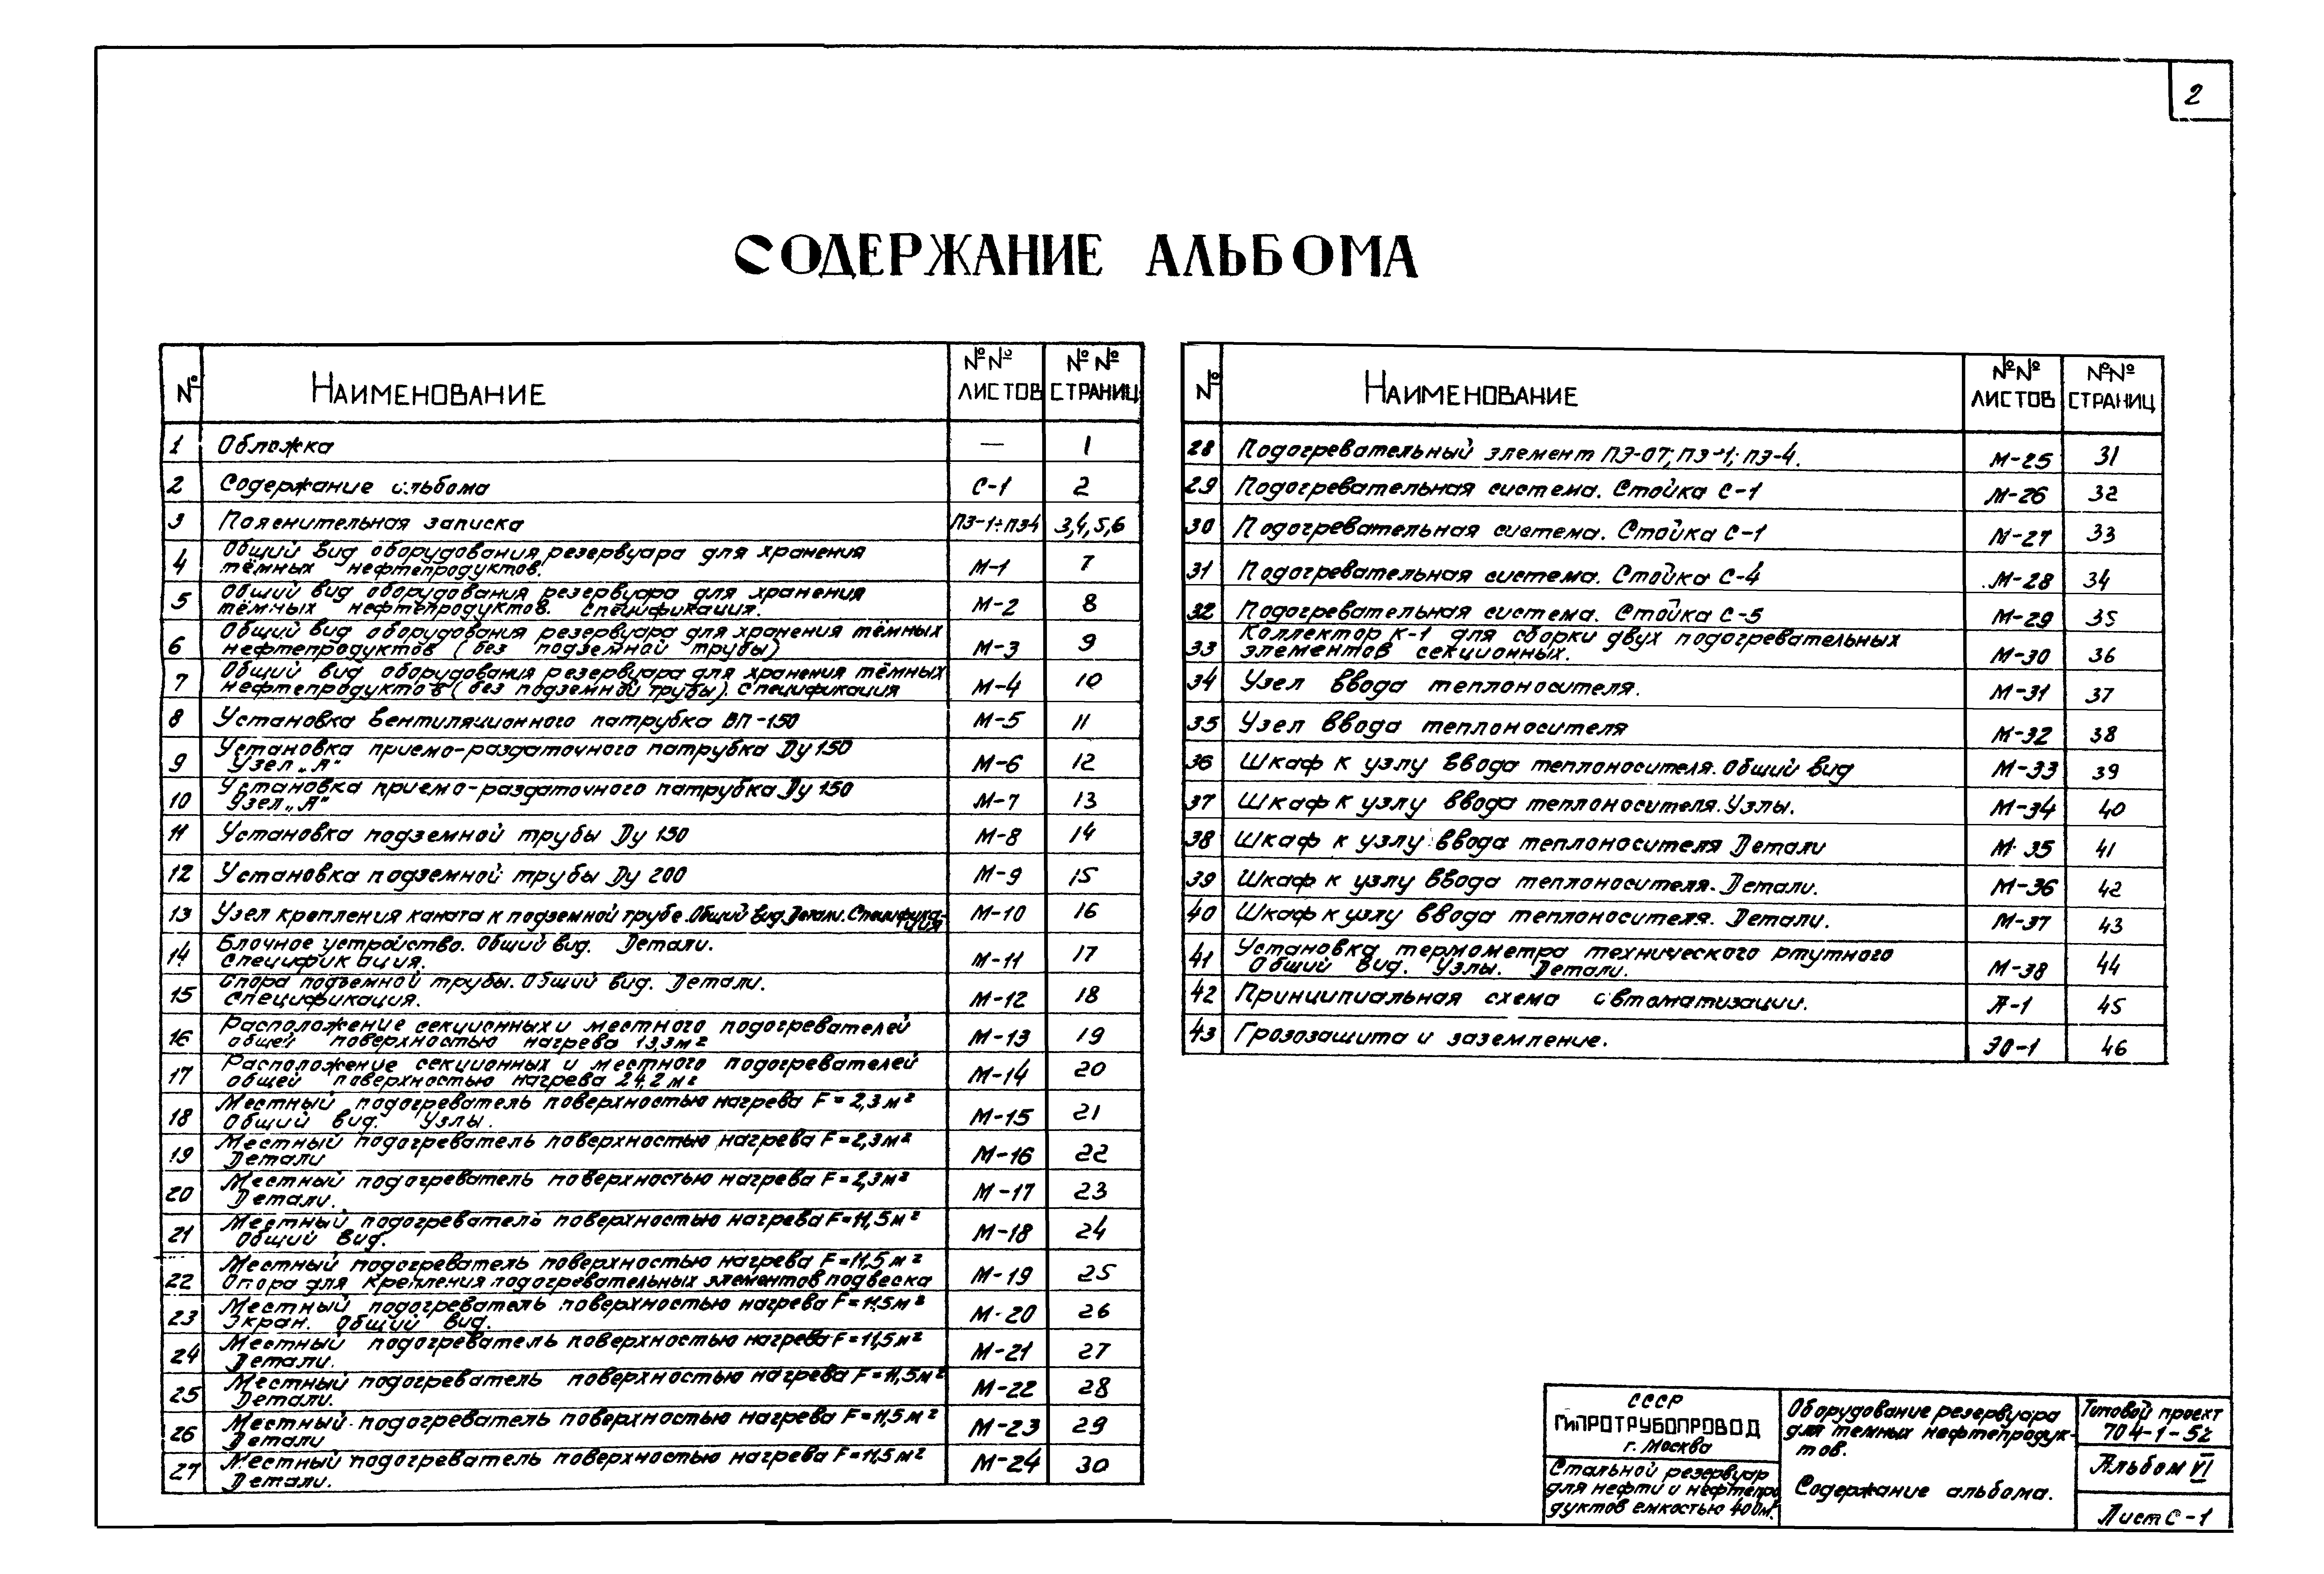 2
СОДЕРЖАНИЕ АЛЬБОМА
№ НАИМЕНОВАНИЕ №№ ЛИСТОВ №№ СТРАНИЦ
1 Обложка — 1
2 Содержание альбома С-1 2
3 Пояснительная записка ПЗ-1÷ПЗ4 3,4,5,6
4 Общий вид оборудования резервуара для хранения
тёмных нефтепродуктов. М-1 7
5 Общий вид оборудования резервуара для хранения
тёмных нефтепродуктов. Спецификация. М-2 8
6 Общий вид оборудования резервуара для хранения тёмных
нефтепродуктов (без подземной трубы) М-3 9
7 Общий вид оборудования резервуара для хранения тёмных
нефтепродуктов (без подземной трубы). Спецификация М-4 10
8 Установка вентиляционного патрубка ВП-150 М-5 11
9 Установка приемо-раздаточного патрубка Ду 150
Узел „А" М-6 12
10 Установка приемо-раздаточного патрубка Ду 150
Узел „Я" М-7 13
11 Установка подземной трубы Ду 150 М-8 14
12 Установка подземной трубы Ду 200 М-9 15
13 Узел крепления каната к подземной трубе. Общий вид. Детали. Специфика-
ция М-10 16
14 Блочное устройство. Общий вид. Детали.
Спецификация. М-11 17
15 Опора подъемной трубы. Общий вид. Детали.
Спецификация. М-12 18
16 Расположение секционных и местного подогревателей
общей поверхностью нагрева 13,3м² М-13 19
17 Расположение секционных и местного подогревателей
общей поверхностью нагрева 24,2 м² М-14 20
18 Местный подогреватель поверхностью нагрева F=2,3м²
Общий вид. Узлы. М-15 21
19 Местный подогреватель поверхностью нагрева F=2,3м²
Детали М-16 22
20 Местный подогреватель поверхностью нагрева F=2,3м²
Детали. М-17 23
21 Местный подогреватель поверхностью нагрева F=11,5м²
Общий вид. М-18 24
22 Местный подогреватель поверхностью нагрева F=11,5 м²
Опора для крепления подогревательных элементов подвеска М-19 25
23 Местный подогреватель поверхностью нагрева F=11,5м²
Экран. Общий вид. М-20 26
24 Местный подогреватель поверхностью нагрева F=11,5м²
Детали. М-21 27
25 Местный подогреватель поверхностью нагрева F=11,5м²
Детали. М-22 28
26 Местный подогреватель поверхностью нагрева F=11,5м²
Детали М-23 29
27 Местный подогреватель поверхностью нагрева F=11,5м²
Детали. М-24 30
№ НАИМЕНОВАНИЕ №№ ЛИСТОВ №№ СТРАНИЦ
28 Подогревательный элемент ПЭ-07; ПЭ-1; ПЭ-4. М-25 31
29 Подогревательная система. Стойка С-1 М-26 32
30 Подогревательная система. Стойка С-1 М-27 33
31 Подогревательная система. Стойка С-4 М-28 34
32 Подогревательная система. Стойка С-5 М-29 35
33 Коллектор К-1 для сборки двух подогревательных
элементов секционных. М-30 36
34 Узел ввода теплоносителя. М-31 37
35 Узел ввода теплоносителя М-32 38
36 Шкаф к узлу ввода теплоносителя. Общий вид М-33 39
37 Шкаф к узлу ввода теплоносителя. Узлы. М-34 40
38 Шкаф к узлу ввода теплоносителя Детали М-35 41
39 Шкаф к узлу ввода теплоносителя. Детали. М-36 42
40 Шкаф к узлу ввода теплоносителя. Детали. М-37 43
41 Установка термометра технического ртутного
Общий вид. Узлы. Детали. М-38 44
42 Принципиальная схема автоматизации. А-1 45
43 Грозозащита и заземление. ЭО-1 46
СССР
ГИПРОТРУБОПРОВОД
г. Москва
Стальной резервуар
для нефти и нефтепро
дуктов емкостью 400м³.
Оборудование резервуара
для темных нефтепродук-
тов.
Содержание альбома.
Типовой проект
704-1-52
Альбом VI
Лист С-1